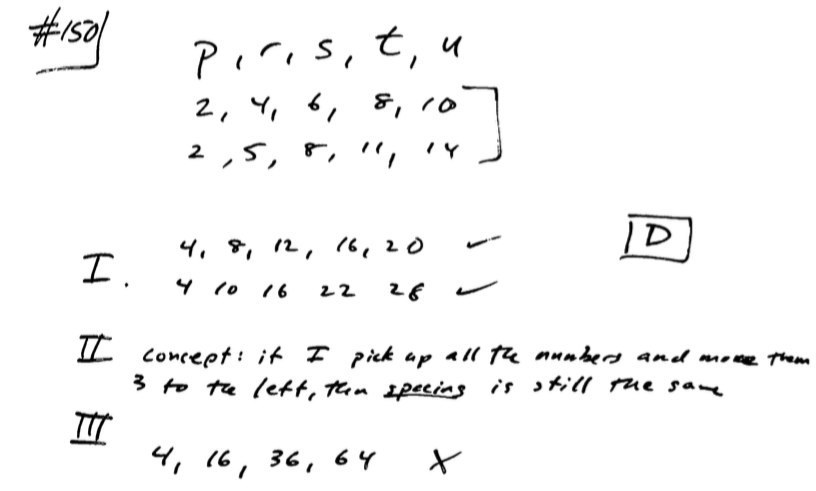 #150
p, r, s, t, u
2, 4, 6, 8, 10
2, 5, 8, 11, 14
I. 4, 8, 12, 16, 20 ✓
4 10 16 22 28 ✓
D
II concept: if I pick up all the numbers and move them
3 to the left, then spacing is still the same
III
4, 16, 36, 64 X